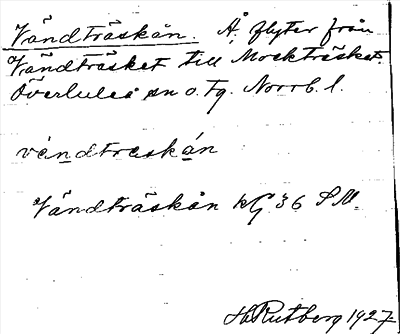 Vändträskån. Å, flyter från
Vändträsket till Mockträsket.
Överluleå sn o. tg. Norrb. l.
vändtraskán
Vändträskån kG 36 SM.
H. Rutberg 1927